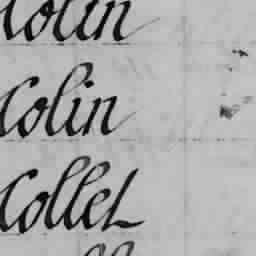 Colin
Colin
Collet